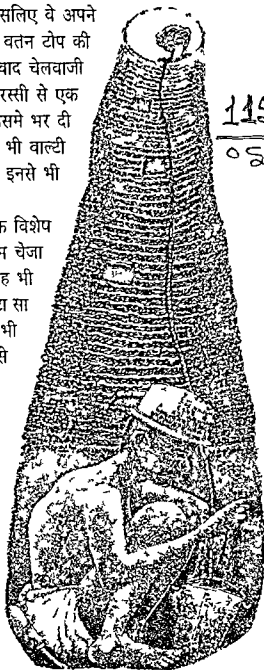 सलिए वे अपने
वर्तन टोप की
वाद चेलवाजी
रस्सी से एक
समे भर दी
भी वाल्टी
इनसे भी
क विशेप
म चेजा
ह भी
टा सा
भी
से
115